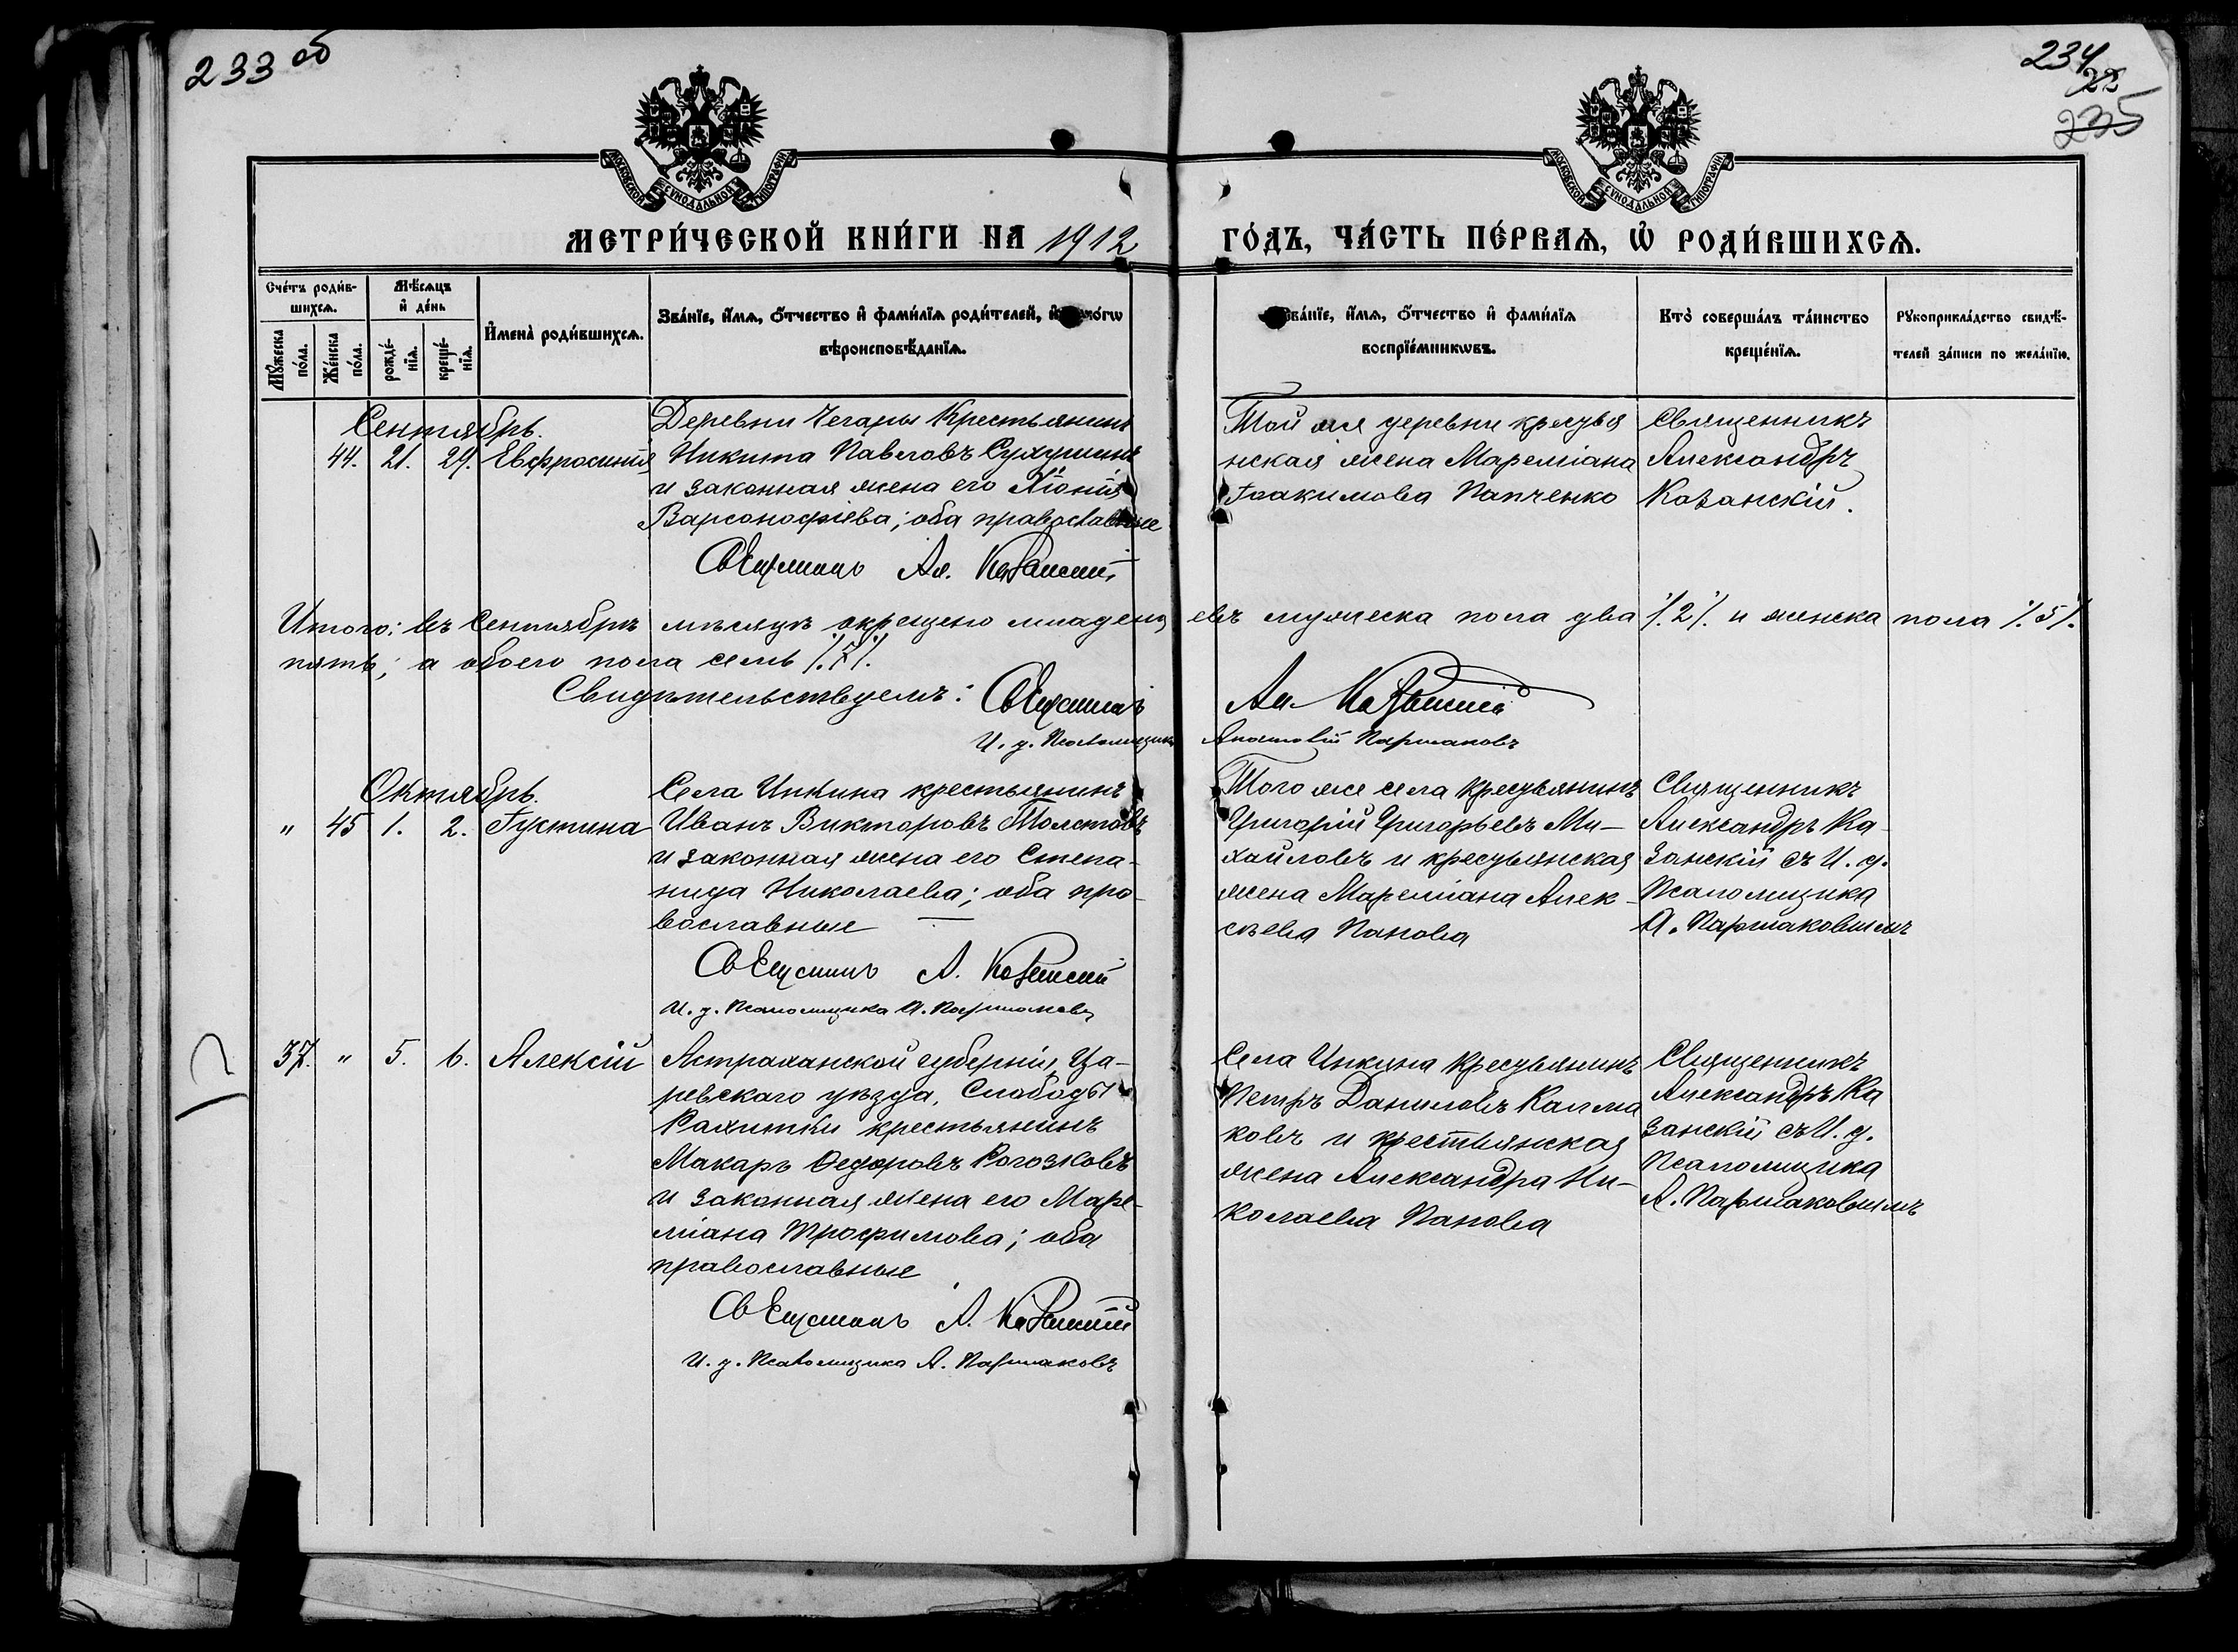 233 об
234
22
235
МОСКОВСКОЙ СѴНОДАЛЬНОЙ ТИПОГРАФІИ
МОСКОВСКОЙ СѴНОДАЛЬНОЙ ТИПОГРАФІИ
МЕТРИ́ЧЕСКОЙ КНИ́ГИ НА 1912 ГО́ДЪ, ЧА́СТЬ ПЕ́РВАѦ, Ѡ҆ РОДИ́ВШИХСѦ.
Сче́тъ роди́в-
шихсѧ.
Мꙋ́жеска по́ла.
Же́нска по́ла.
Мѣ́сѧцъ
и҆ де́нь
рожде́-
нїѧ.
креще́-
нїѧ.
И҆мена̀ роди́вшихсѧ.
Зва́нїе, и҆́мѧ, ѻ҆́тчество и҆ фами́лїѧ роди́телей, и҆
вѣроисповѣ́данїѧ.
Зва́нїе, и҆́мѧ, ѻ҆́тчество и҆ фами́лїѧ
воспрїе́мникѡвъ.
Кто̀ соверша́лъ та́инство
креще́нїѧ.
Рꙋкоприкла́дство свидѣ́-
телей за́писи по жела́нїю.
Сентябрь.
44. 21. 29. Евфросинія
Деревни Чегары Крестьянинъ
Никита Павловъ Сухушинъ
и законная жена его Хіонія
Варсонофіева; оба православные
Священникъ Ал. Казанскій
Той же деревни крестья
нская жена Мареміана
Іоакимова Панченко
Священникъ
Александръ
Казанскій.
Итого: въ Сентябрѣ мѣсяцѣ окрещено младенцевъ мужеска пола два %2% и женска пола %5%
пять; а обоего пола семь %7%.
Свидѣтельствуемъ: Священникъ Ал. Казанскій
И. д. Псаломщика Паршаковъ
Октябрь.
" 45 1. 2. Іустина
Села Инкина крестьянинъ
Иванъ Викторовъ Толстовъ
и законная жена его Степа-
нида Николаева; оба пра-
вославные
Священникъ А. Казанскій
И. д. Псаломщика А. Паршаковъ
Того же села крестьянинъ
Григорій Григорьевъ Ми-
хайловъ и крестьянская
жена Мареміана Алек-
сѣева Панова
Священникъ
Александръ Ка-
занскій съ И. д.
Псаломщика
А. Паршаковымъ
37. " 5. 6. Алексій
Астраханской губерніи, Ца-
ревскаго уѣзда, Слободы
Рахинки крестьянинъ
Макаръ Ѳедоровъ Рогозковъ
и законная жена его Маре-
міана Трофимова; оба
православные
Священникъ А. Казанскій
И. д. Псаломщика А. Паршаковъ
Села Инкина крестьянинъ
Петръ Даниловъ Калма
ковъ и крестьянская
жена Александра Ни-
колаева Панова
Священникъ
Александръ Ка
занскій съ И. д.
Псаломщика
А. Паршаковымъ